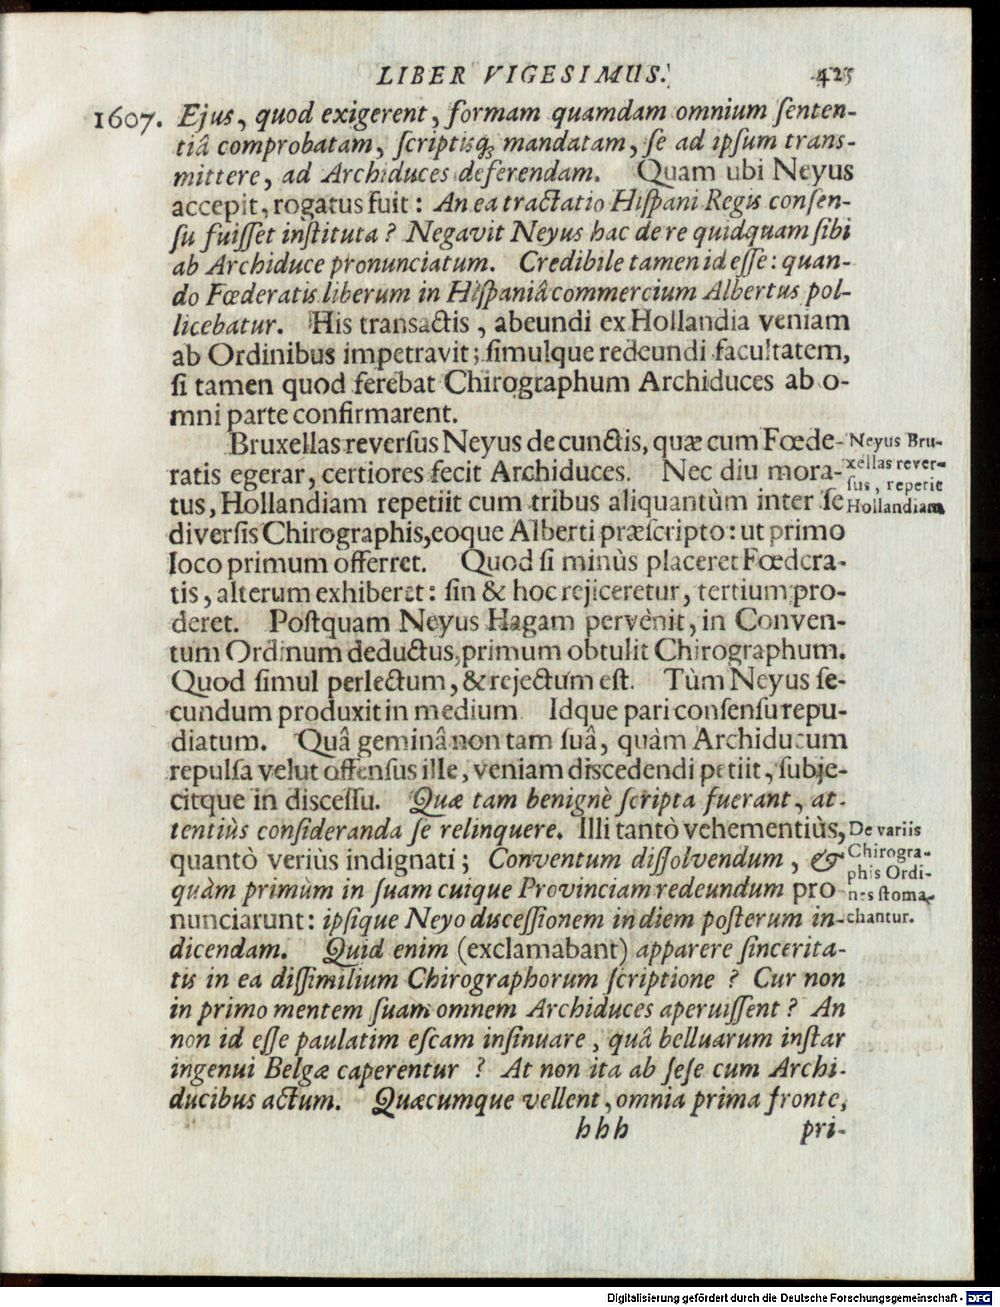 LIBER VIGESIMUS. 425
1607. Ejus, quod exigerent, formam quamdam omnium ſenten-
tiâ comprobatam, ſcriptisq; mandatam, ſe ad ipſum trans-
mittere, ad Archiduces deferendam. Quam ubi Neyus
accepit, rogatus fuit: An ea tractatio Hiſpani Regis conſen-
ſu fuiſſet inſtituta? Negavit Neyus hac de re quidquam ſibi
ab Archiduce pronunciatum. Credibile tamen id eſſe: quan-
do Fœderatis liberum in Hiſpaniâ commercium Albertus pol-
licebatur. His transactis, abeundi ex Hollandia veniam
ab Ordinibus impetravit; ſimulque redeundi facultatem,
ſi tamen quod ferebat Chirographum Archiduces ab o-
mni parte confirmarent.
Bruxellas reverſus Neyus de cunctis, quæ cum Fœde-
ratis egerar, certiores fecit Archiduces. Nec diu mora-
tus, Hollandiam repetiit cum tribus aliquantùm inter ſe
diverſis Chirographis, eoque Alberti præſcripto: ut primo
loco primum offerret. Quod ſi minùs placeret Fœdera-
tis, alterum exhiberet: ſin & hoc rejiceretur, tertium pro-
deret. Poſtquam Neyus Hagam pervènit, in Conven-
tum Ordinum deductus, primum obtulit Chirographum.
Quod ſimul perlectum, & rejectum eſt. Tùm Neyus ſe-
cundum produxit in medium Idque pari conſenſu repu-
diatum. Quâ geminâ non tam ſuâ, quàm Archiducum
repulſa velut offenſus ille, veniam discedendi petiit, ſubje-
citque in disceſſu. Quæ tam benignè ſcripta fuerant, at-
tentiùs conſideranda ſe relinquere. Illi tantò vehementiùs,
quantò veriùs indignati; Conventum diſſolvendum, &
quàm primùm in ſuam cuique Provinciam redeundum pro
nunciarunt: ipſique Neyo disceſſionem in diem poſterum in-
dicendam. Quid enim (exclamabant) apparere ſincerita-
tis in ea diſſimilium Chirographorum ſcriptione? Cur non
in primo mentem ſuam omnem Archiduces aperuiſſent? An
non id eſſe paulatim eſcam inſinuare, quâ belluarum inſtar
ingenui Belgæ caperentur? At non ita ab ſeſe cum Archi-
ducibus actum. Quæcumque vellent, omnia prima fronte,
hhh pri-
Neyus Bru-
xellas rever-
ſus, repetit
Hollandiam
De variis
Chirogra-
phis Ordi-
nes ſtoma-
chantur.
Digitalisierung gefördert durch die Deutsche Forschungsgemeinschaft - DFG